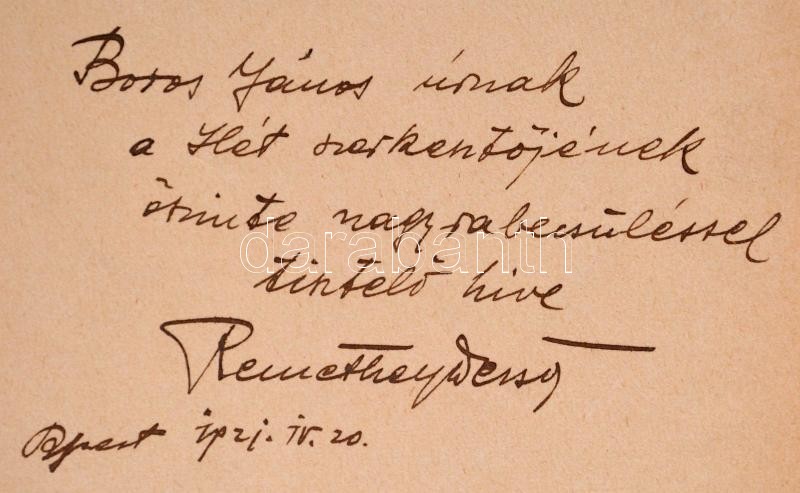 Boros János úrnak
a Hét szerkesztőjének
őszinte nagyrabecsüléssel
darabanth
tisztelő hive
Remethey Dezső
Bpest IV. 20.